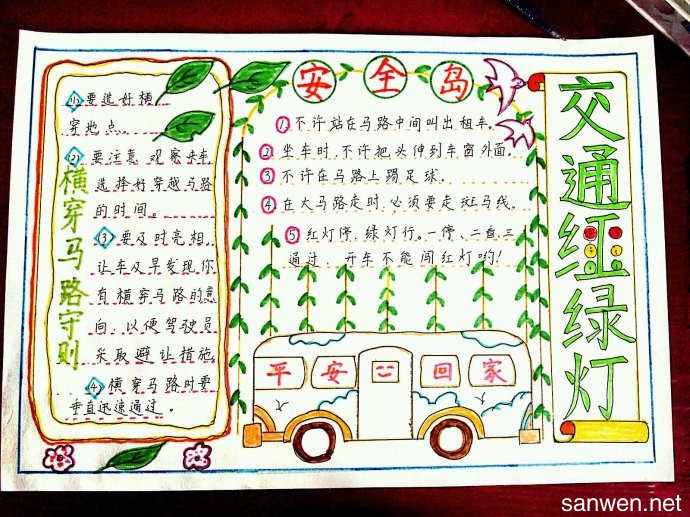 横穿马路守则
①要选好横
穿地点。
②要注意观察来车
选择好穿越马路
的时间。
③要及时亮相,
让车及早发现你
有横穿马路的意
向,以便驾驶员
采取避让措施。
④横穿马路时要
垂直迅速通过。
安全岛
①不许站在马路中间叫出租车。
②坐车时,不许把头伸到车窗外面。
③不许在马路上踢足球。
④在大马路走时,必须要走斑马线。
⑤红灯停,绿灯行。一停、二看、三
通过 开车不能闯红灯哟!
平安回家
交通红绿灯
sanwen.net